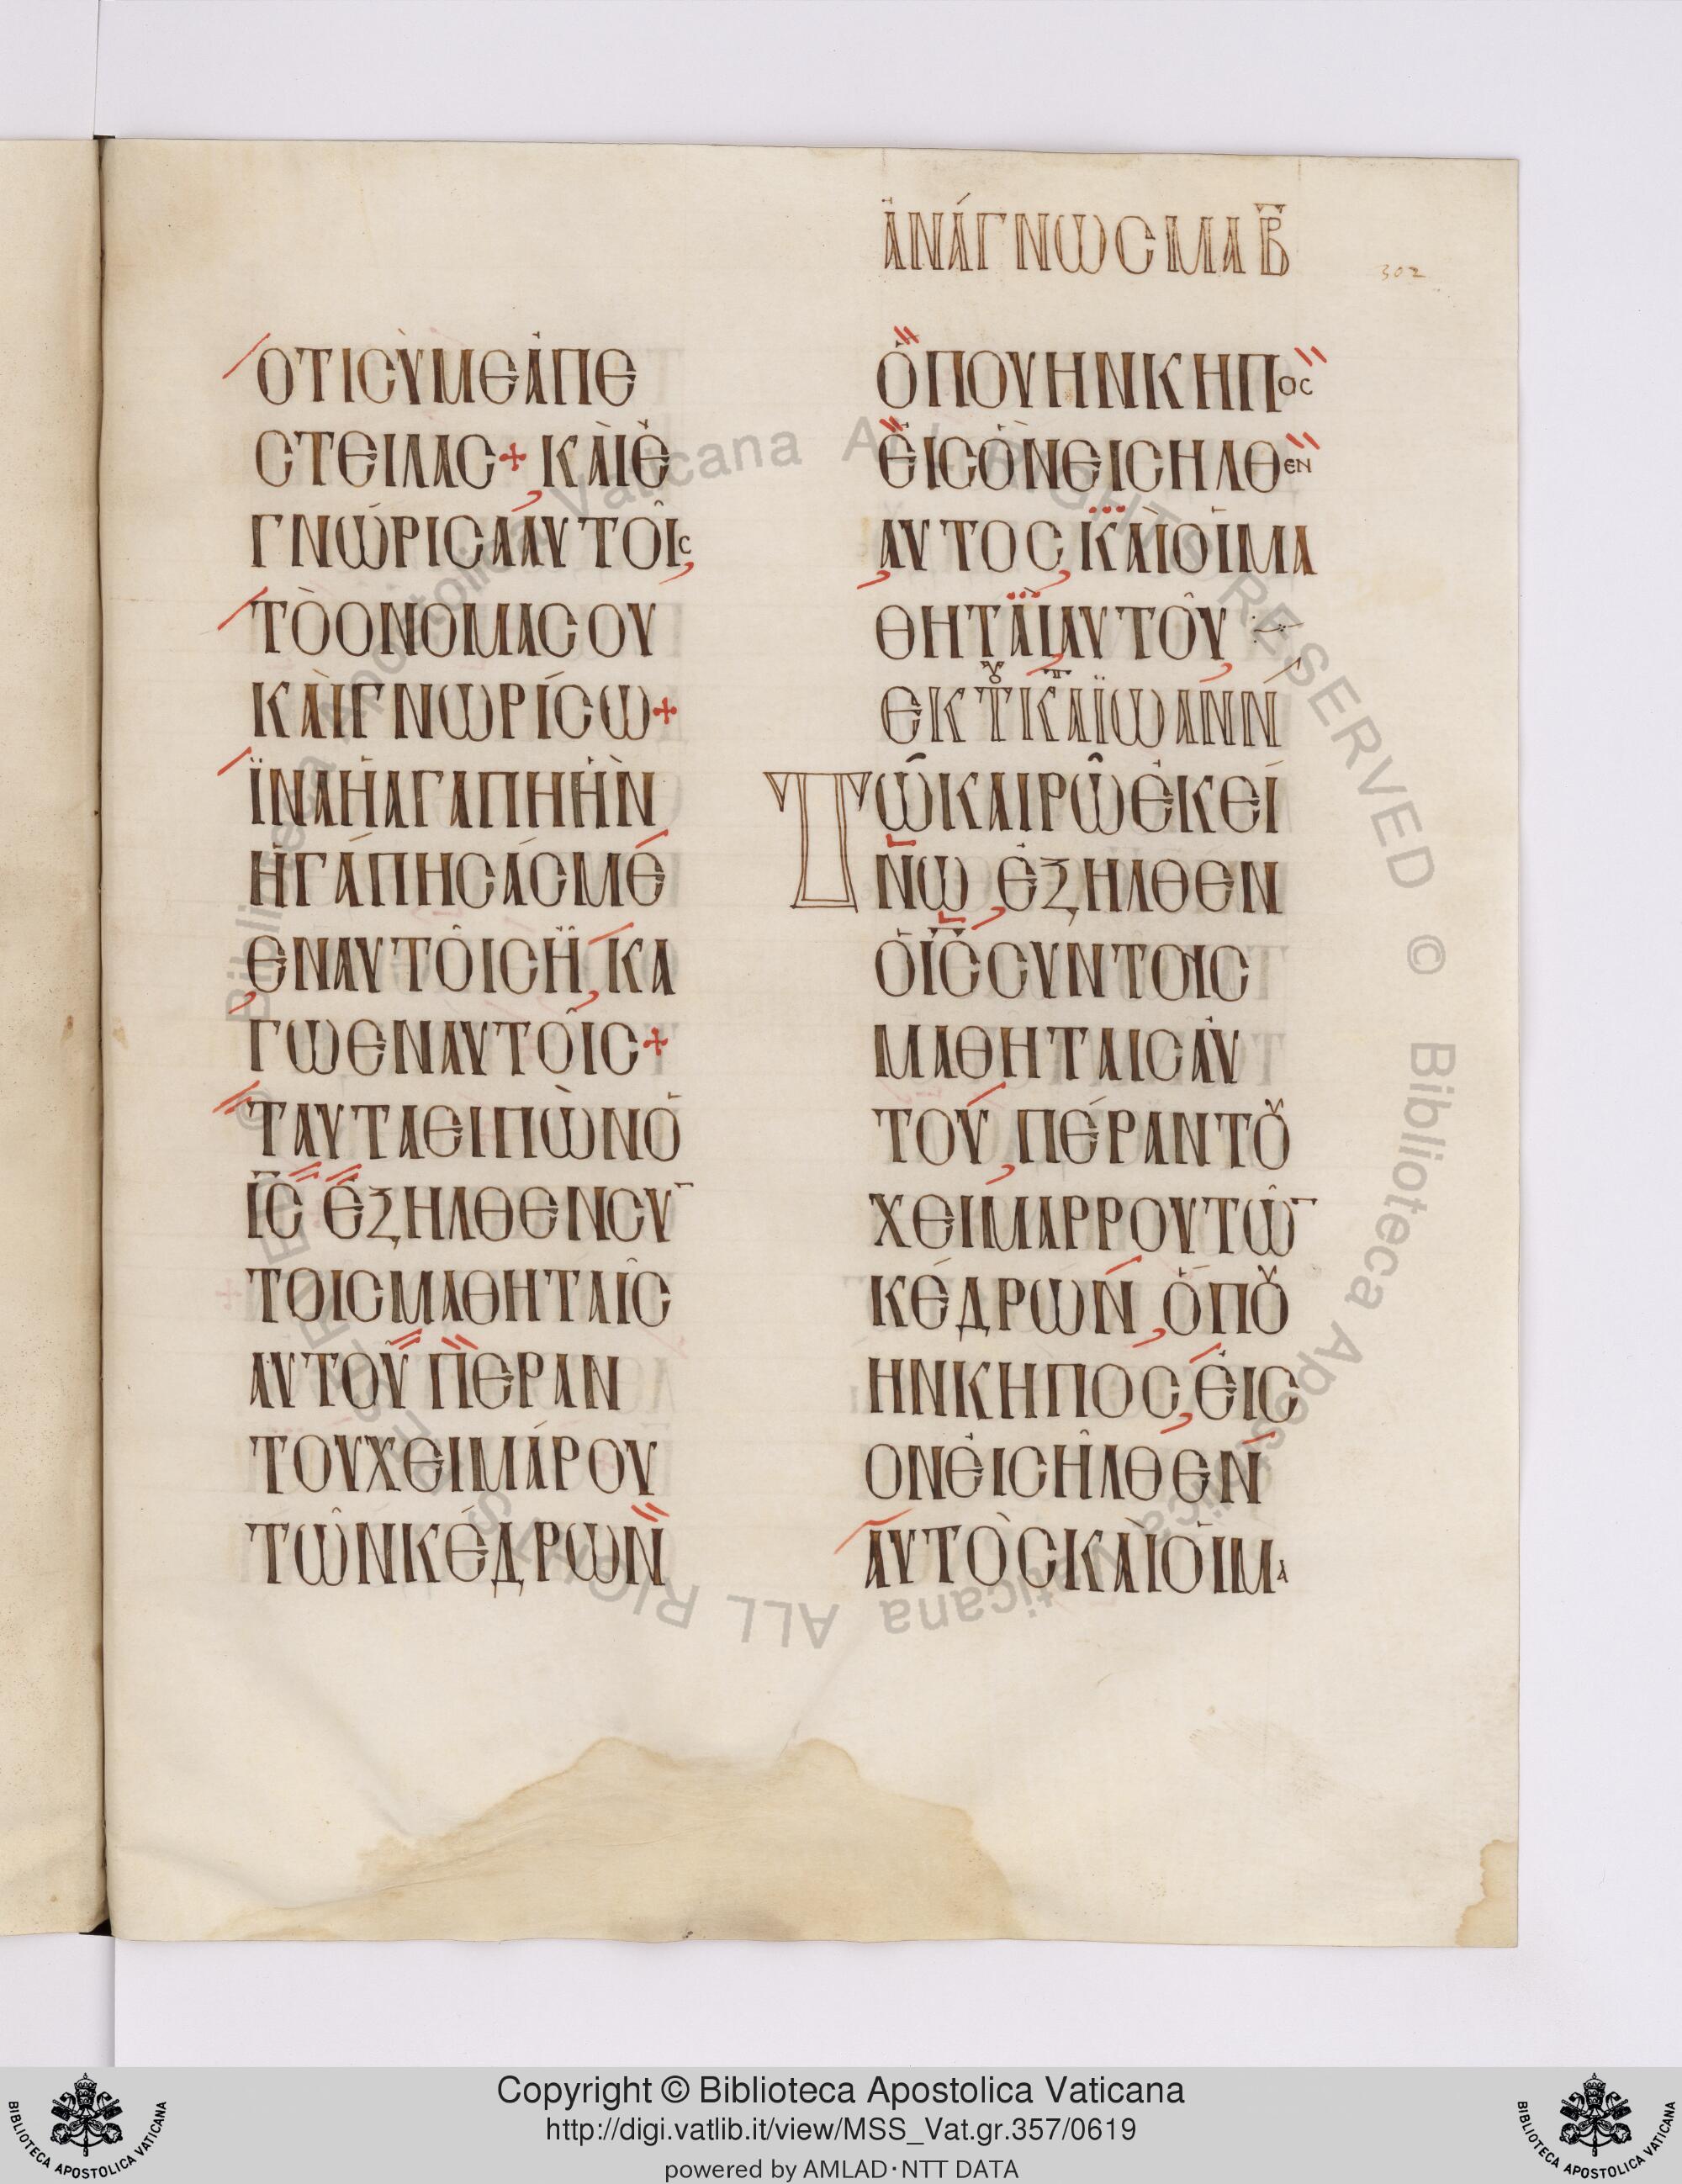 ἈΝΆΓΝΩϹΜΑ Β̅
302
ΟΤΙϹῪΜΕἈΠΕ
ϹΤΕΙΛΑϹ+ ΚᾺΙἘ
ΓΝΏΡΙϹΑΑΥΤΟῖϹ
ΤῸΟΝΟΜΑϹΟΥ
ΚᾺΙΓΝΩΡΊϹΩ+
ΪΝΑἩΑΓΑΠΗἫΝ
ἨΓΆΠΗϹΆϹΜΕ
ΕΝΑΥΤΟΙϹΗ ΚΑ
ΓΩΕΝΑΥΤΟῖϹ+
ΤΑΥΤΑΕΙΠῺΝΟ
ΙϹ̅ ἘΞΗΛΘΕΝϹΥ̅
ΤΟΙϹΜΑΘΗΤΑῖϹ
ΑΥΤΟΥ ΠΕΡΑΝ
ΤΟΥΧΕΙΜΆΡΟΥ
ΤῶΝΚΈΔΡΩΝ
ὍΠΟΥΗΝΚΗΠΟϹ
ἘΙϹὋΝΕΙϹΗΛΘΕΝ
ΑΥΤΟϹ ΚᾺΙΟΙΜΑ
ΘΗΤᾺΙΑΥΤΟῦ
ΕΚ Τ ΚΑΪΩΑΝΝ
ΤῶΚΑΙΡῶἘΚΕΊ
ΝΩ ἘΞΗΛΘΕΝ
ὉΙϹ̅ϹΥΝΤΟΙϹ
ΜΑΘΗΤΑΙϹἈΥ
ΤΟΥ ΠΈΡΑΝΤȢ
ΧΕΙΜΑΡΡΟΥΤῶ̅
ΚΈΔΡΩΝ ὍΠȢ
ΗΝΚΗΠΟϹ ἘΙϹ
ΟΝἘΙϹῆΛΘΕΝ
ΑΥΤῸϹΚΑῚΟΙΜΑ
© Biblioteca Apostolica Vaticana ALL RIGHTS RESERVED
© Biblioteca Apostolica Vaticana ALL RIGHTS RESERVED
Copyright © Biblioteca Apostolica Vaticana
http://digi.vatlib.it/view/MSS_Vat.gr.357/0619
powered by AMLAD·NTT DATA
BIBLIOTECA APOSTOLICA VATICANA
BIBLIOTECA APOSTOLICA VATICANA